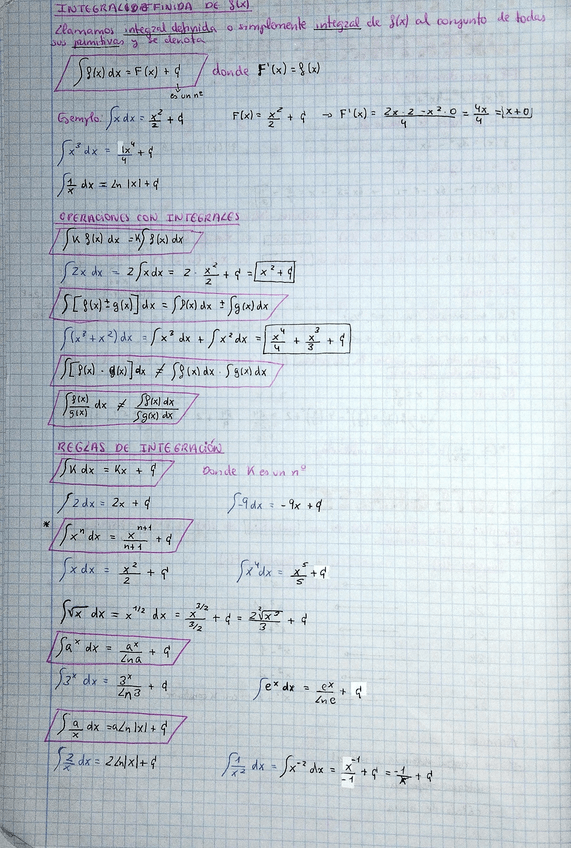 INTEGRAL INDEFINIDA DE f(x)
Llamamos integral definida o simplemente integral de f(x) al conjunto de todas
sus primitivas y se denota
∫f(x) dx = F(x) + C donde F'(x) = f(x)
es un nº
Ejemplo: ∫x dx = x²/2 + C F(x) = x²/2 + C → F'(x) = (2x · 2 - x² · 0)/4 = 4x/4 = |x + 0|
∫x³ dx = 1x⁴/4 + C
∫1/x dx = Ln |x| + C
OPERACIONES CON INTEGRALES
∫K f(x) dx = K∫f(x) dx
∫2x dx = 2∫x dx = 2 · x²/2 + C = x² + C
∫[f(x) ± g(x)] dx = ∫f(x) dx ± ∫g(x) dx
∫(x³ + x²) dx = ∫x³ dx + ∫x² dx = x⁴/4 + x³/3 + C
∫[f(x) · g(x)] dx ≠ ∫f(x) dx · ∫g(x) dx
∫f(x)/g(x) dx ≠ ∫f(x) dx/∫g(x) dx
REGLAS DE INTEGRACIÓN
∫K dx = Kx + C Donde K es un nº
∫2 dx = 2x + C ∫-9 dx = -9x + C
* ∫xⁿ dx = xⁿ⁺¹/n+1 + C
∫x dx = x²/2 + C ∫x⁴ dx = x⁵/5 + C
∫√x dx = x^1/2 dx = x^3/2/3/2 + C = 2²√x³/3 + C
∫aˣ dx = aˣ/Ln a + C
∫3ˣ dx = 3ˣ/Ln 3 + C ∫eˣ dx = eˣ/Ln e + C
∫a/x dx = a Ln |x| + C
∫2/x dx = 2 Ln |x| + C ∫1/x² dx = ∫x⁻² dx = x⁻¹/-1 + C = -1/x + C